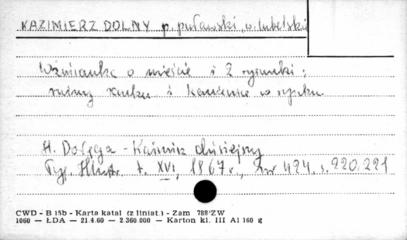 KAZIMIERZ DOLNY p. puławski, w. lubelskie
Wzmianka o mieście i 2 rysunki:
ruiny zamku i kamienice w rynku
H. Dołęga - Kazimierz dzisiejszy
Tyg. Illustr. t. XVI, 1867 r., nr 424, s. 220, 221
CWD - B 15b - Karta katal. (z liniat.) - Zam 788/ZW
1060 — ŁDA — 21.4.60 — 2.360.000 — Karton kl. III A1 160 g